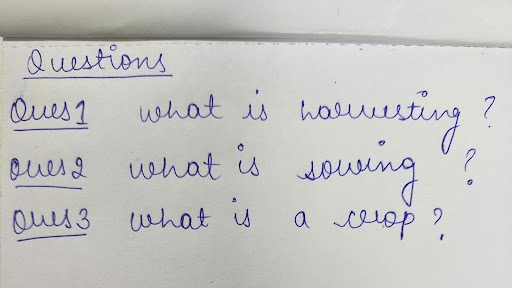 Questions
Ques 1 what is harvesting ?
Ques 2 what is sowing ?
Ques 3 what is a crop ?